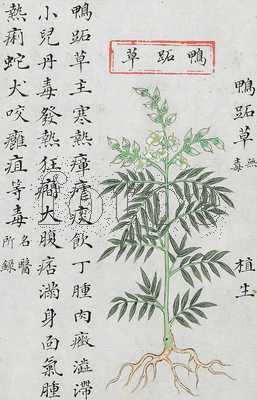 鴨跖草 無毒 植生
草跖鴨
鴨跖草主寒熱瘴瘧痰飲丁腫肉癥澁滯
小兒丹毒發熱狂癇大腹痞滿身面氣腫
熱痢蛇犬咬癰疽等毒 名醫所錄